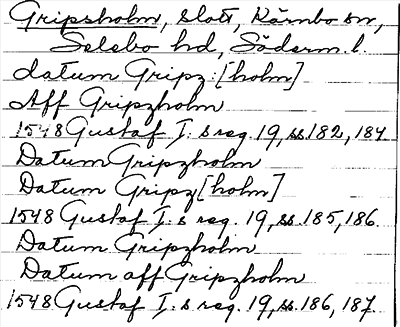 Gripsholm, slott, Kärnbo sn,
Selebo hd, Söderm. l.
datum Gripz: [holm]
Aff Gripzholm
1548 Gustaf I:s reg. 19, ss 182, 184.
Datum Gripzholm
Datum Gripz [holm]
1548 Gustaf I:s reg. 19, ss. 185, 186.
Datum Gripzholm
Datum aff Gripzholm
1548 Gustaf I:s reg. 19, ss. 186, 187.